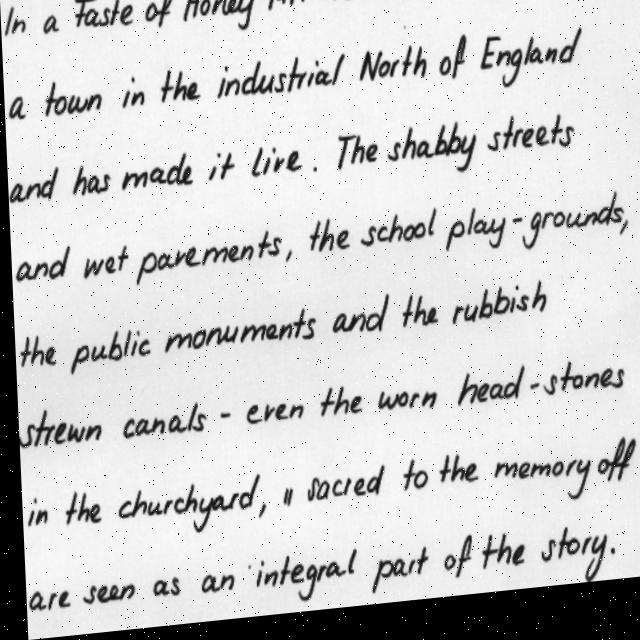 In a Taste of Honey
a town in the industrial North of England
and has made it live. The shabby streets
and wet pavements, the school play-grounds,
the public monuments and the rubbish
strewn canals - even the worn head-stones
in the churchyard, " sacred to the memory off
are seen as an integral part of the story.